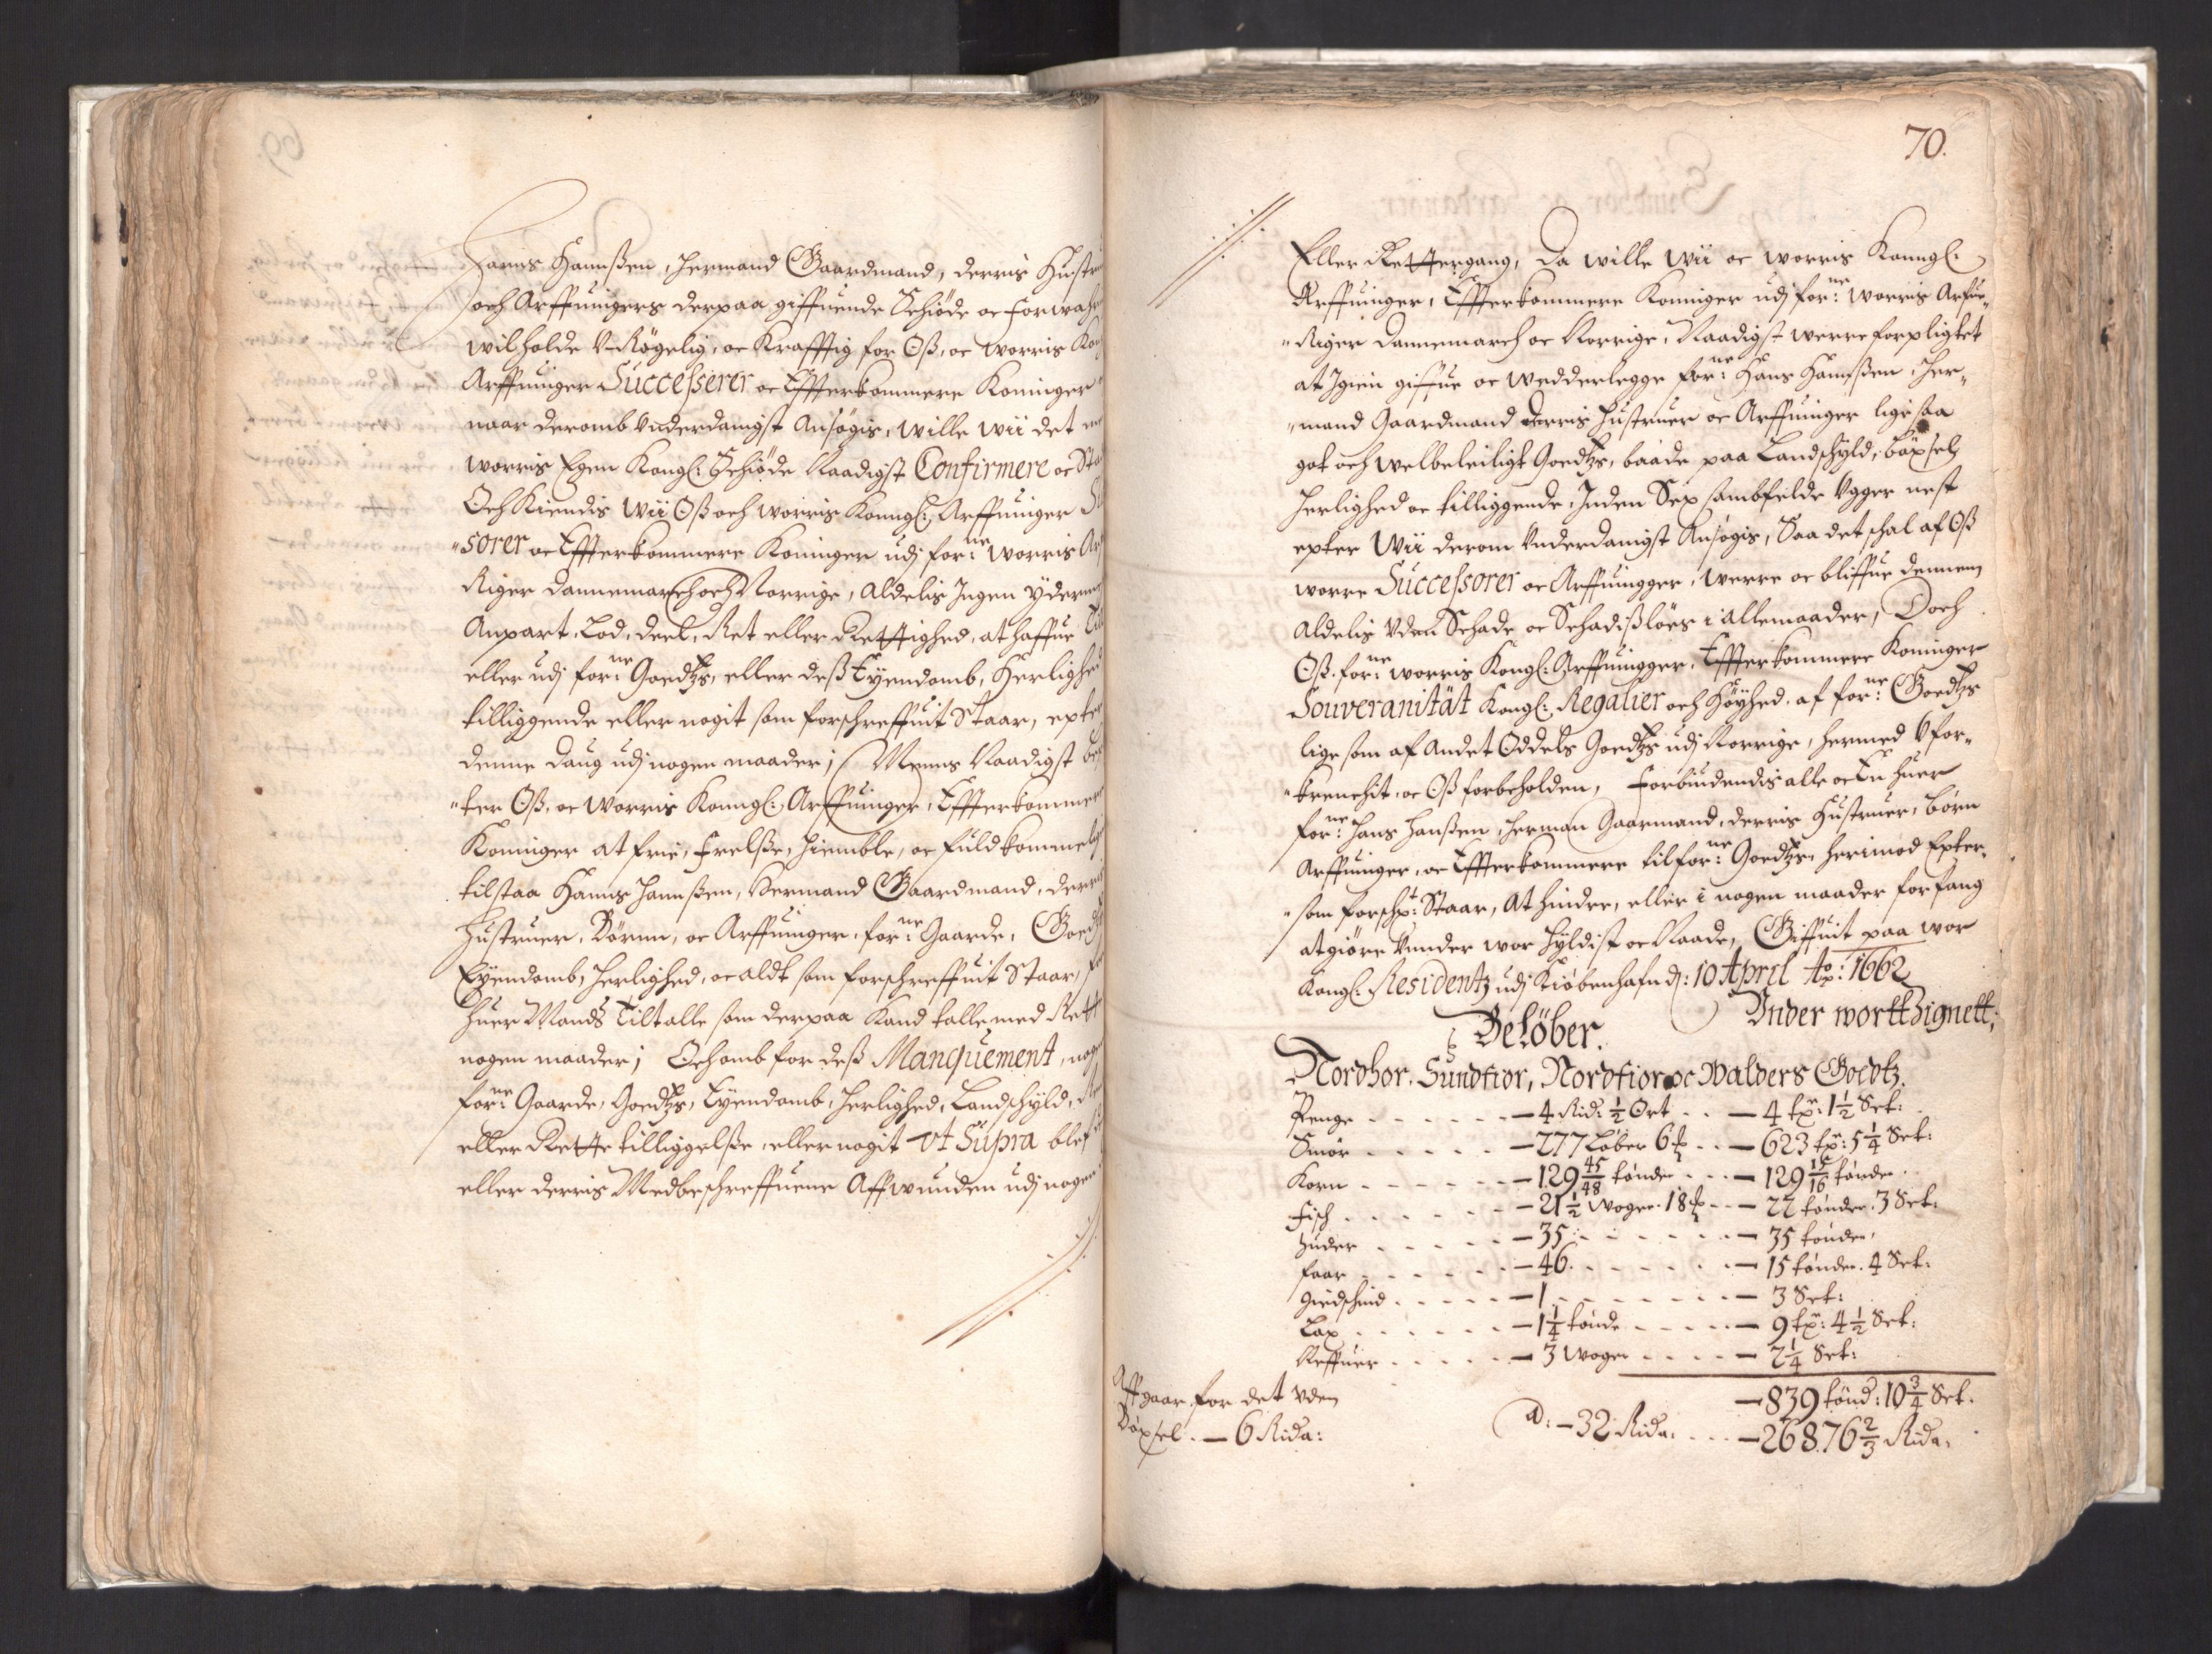 Hanns Hannßen, Hermand Gaardmand, derris Hustru
och Arffuingers derpaa giffuende Schiöde oc forwahr
wil holde V-Røgelig, oc Krafftig for Oß, oc worris Kon
Arffuinger Successerer oc Effterkommere Koninger
naar deromb Vnderdanigst Ansøgis, wille wii det
worris Egen Kongl: Schiöde Naadigst Confirmere oc Sta
Och Kiendis Wii Oß och worris Konngl: Arffuinger Su
"sorer oc Effterkommere Koninger udj for:ne worris Arf
Riger Dannemarch och Norrige, Aldelis Ingen yderme
Anpart, Lod, deel, Ret eller Rettighed, at haffue Til
eller udj for:ne Goedtzs, eller deß Eyendomb, Herlighed
tilliggende eller nogit som forschreffuit Staar, epter
denne Daug udj nogen maader; Menns Naadigst be
"ter Oß, oc worris Konngl: Arffuinger, Effterkommere
Koninger at frie, Frelße, Hiemble, oc fuldkommelig
tilstaa Hanns Hannßen, Hermand Gaardmand, derris
Hustruer, Börnn, oc Arffuinger, for:ne Gaarde, Goedtz
Eyendomb, Herlighed, oc aldt som forschreffuit Staar, for
huer Mands Tiltalle som derpaa Kand talle med Rett
nogen maader; Och omb for deß Manquement, nog
for:ne Gaarde, Goedtzs, Eyendomb, Herlighed, Landschyld,
eller Rette tilliggelße, eller nogit vt Supra blef
eller derris Medbeschreffuene Affwunden udj nogen
70.
Eller Rettergang, Da wille wii oc worris Konngl:
Arffuinger, Effterkommere Koninger udj for:ne worris Arfue,,
"Riger Dannemarch oc Norrige, Naadigst werre forpligtet
at Igien giffue oc wedderlegge for:ne Hans Hanßen, Her,,
"mand Gaardmand derris Hustruer oc Arffuinger ligesaa
got och welbeleiligt Goedtzs, baade paa Landschyld, böxsel,
Herlighed oc tilliggende, Inden Sex sambfelde Vgger nest
epter Wii derom Vnderdanigst Ansøgis, Saa det schal af Oß
worre Successorer oc Arffuingger, werre oc bliffue dennem
Aldelis Vden Schade oc Schadißlöes i allemaader, Doch
Oß. for:ne worris Kongl: Arffuingger, Effterkommere Koninger
Souveranität Kongl: Regalier och Höyhed, af for:ne Goedtzs
lige som af Andet Oddels Goedtzs udj Norrige, hermed Vfor,,
"krenchit, oc Oß forbeholden, Forbiudendis alle oc En huer
for:ne Hans Hanßen, Herman Gaarmand, derris Hustruer, Börn
Arffuinger, oc Effterkommere til for:ne Goedtzs, herimod Epter,,
"som forschr: Staar, At hindre, eller i nogen maader forfang
at giöre Vnnder wor Hyldist oc Naade, Giffuit paa wor
Kongl: Residentz udj Kiöbenhafn d: 10 April Ao: 1662
Vnder wortt Zignett;
Belöber.
Nordhor. Sundfior, Nordfior oc Walders Goedtz.
Penge - - - - - - 4 Rid: ½ Ort - - - 4 tr: 1½ Set:
Smör - - - - - - 277 Löber 6 - - - 623 tr: 5¼ Set:
Korn - - - - - - 129 45/48 tönder - - - 129 15/16 tönder.
Fisch - - - - - - 21½ Woger 18 - - - 22 tönder. 3 Set:
Huder - - - - - - 35 - - - - - - 35 tönder,
Faar - - - - - - 46 - - - - - - 15 tönder. 4 Set:
Giedschind - - - - - 1 - - - - - - 3 Set:
Lax - - - - - - 1¼ tönde - - - - 9 tr: 4½ Set:
Neffuer - - - - - 3 Woger - - - - 2¼ Set:
839 tönd: 10¾ Set.
Affgaar for det vden
Böxsel. - 6 Rida:
a: - 32 Rida: - - - 268.76 2/3 Rida,